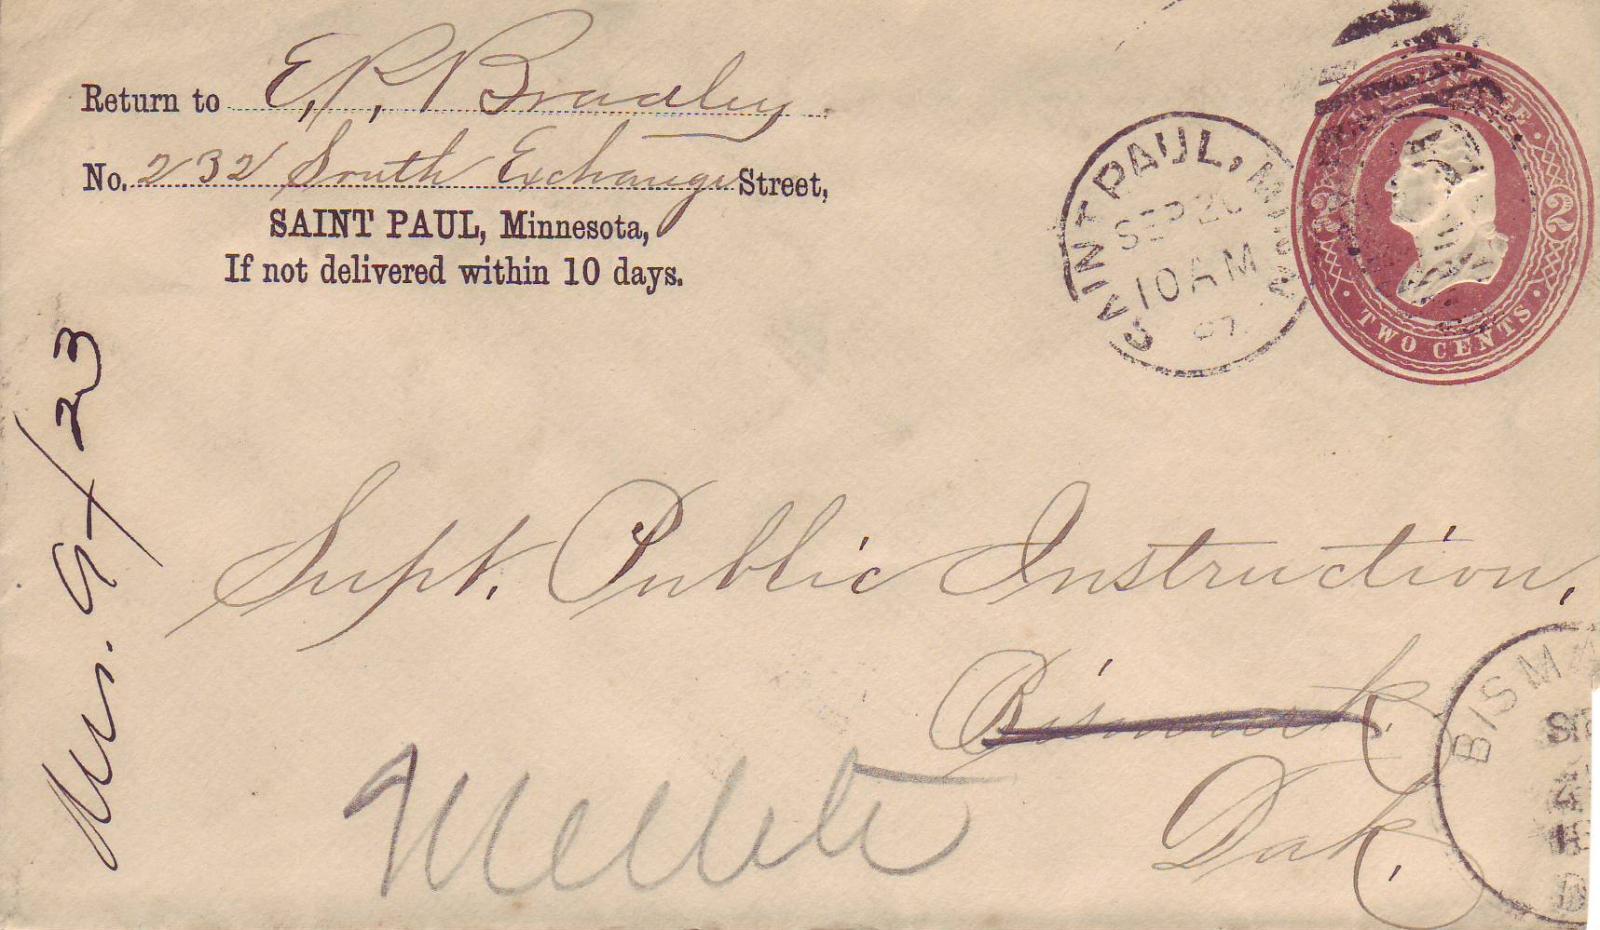 Return to E. R. Bradley
No. 232 South Exchange Street,
SAINT PAUL, Minnesota,
If not delivered within 10 days.
SAINT PAUL, MINN.
SEP 20
10 AM
87
2 2
TWO CENTS
9/23
Supt. Public Instruction,
Bismarck.
Dak.
Mellette
BISMA